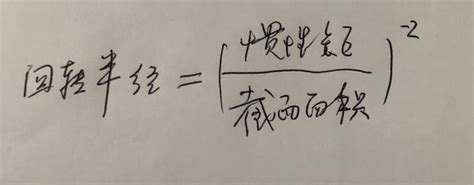 回转半径 = (惯性矩/截面面积)^-2